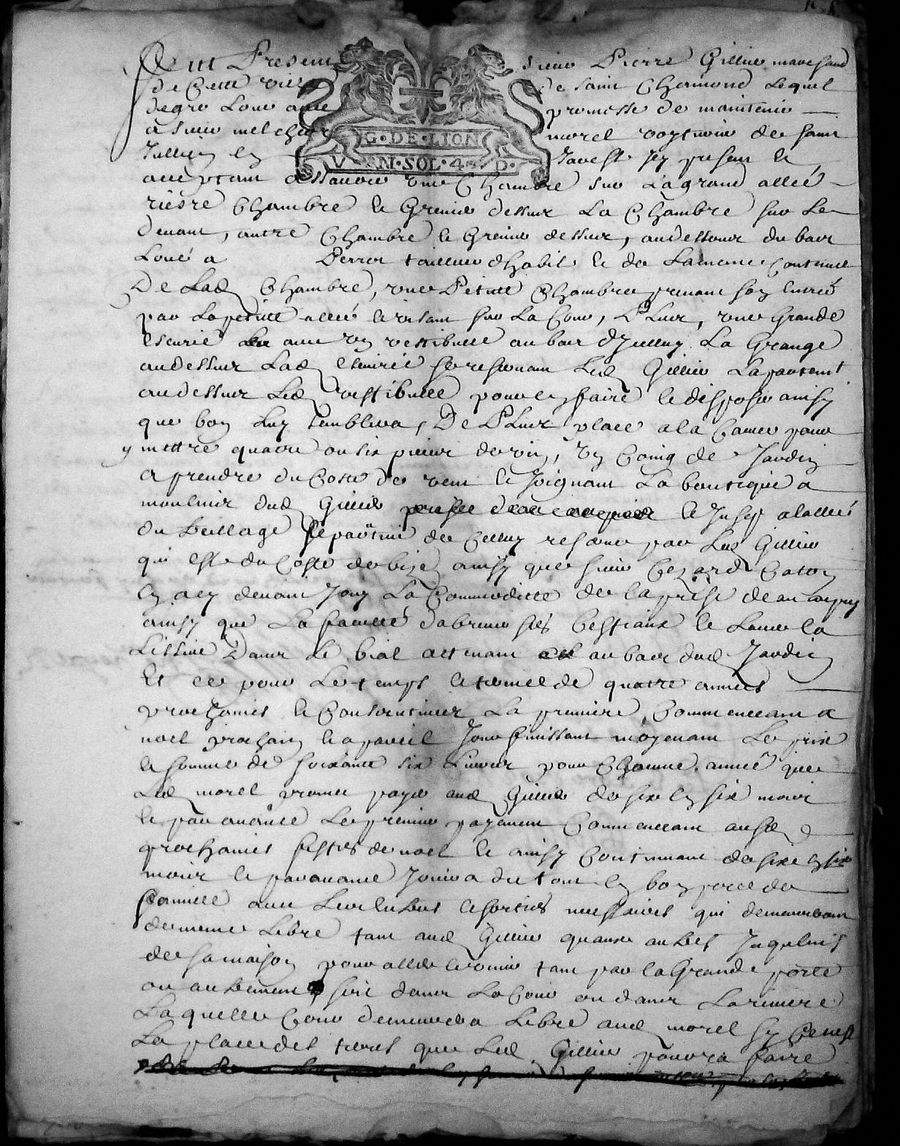 Fut Present sieur Pierre Gillier marchand
de Cette ville de Saint Chamond Lequel
de gre Loue avec promesse de maintenir
a sieur melchior morel de saint
Jullien en Jarest Icy present et
G · DE · LION
V N · SOL · 4 D ·
acceptant assavoir une Chambre sur La grand allée
rière Chambre et Grenier dessus La Chambre sur Le
devant, autre Chambre et Grenier dessus, au dessous du bail
Loué a Perrot tailleur dhabit et de La meme Continue
De Lad Chambre, une Petite Chambre prenant son Entrée
par La petite allée et visant sur La Cour, Plus, une Grande
escurie avec un vestibule au bas d'Icelluy La Grange
au dessus Lad escuirie se reservant Led Gillier La partent
au dessus Led vestibule pour en faire et disposer ainsy
que bon Luy semblera, De Plus place a la Cave pour
y mettre quatre ou six pieces de vin, un Coing de Jardin
a prendre du Costé de vent et Joignant La boutique a
mouliner dud Gillier et Jusq a lallée
du
qui est du Costé de bize ainsy que sieur Cezard
cy devant Jouy La Commodité de la prise deau
ainsy que La faculté dabreuver ses bestiaux et Laver la
Lissive Dans Le bial attenant au bas dud Jardin
Et ce pour Le temps et terme de quatre années
prochaines et Consecutives La première Commencant a
noel prochain et a pareil Jour finissant moyenant Le prix
et somme de soixante six Livres pour Chacune année que
Led morel promet payer aud Gillier de six en six mois
et par avance Le premier payement Commencant aux
prochaines festes de noel et ainsy Continuant de six en six
mois et par avance Jouira du tout en bon pere de
famille avec Leur Entrées et sorties necessaires qui demeureront
de meme Libre tant aud Gillier quaux autres Inquelins
de sa maison pour aller et venir tant par la Grande porte
ou autrement soit dans La Cour ou dans La riviere
Laquelle Cour demeurera Libre aud morel sy Cenest
La place des que Led Gillier pourra faire